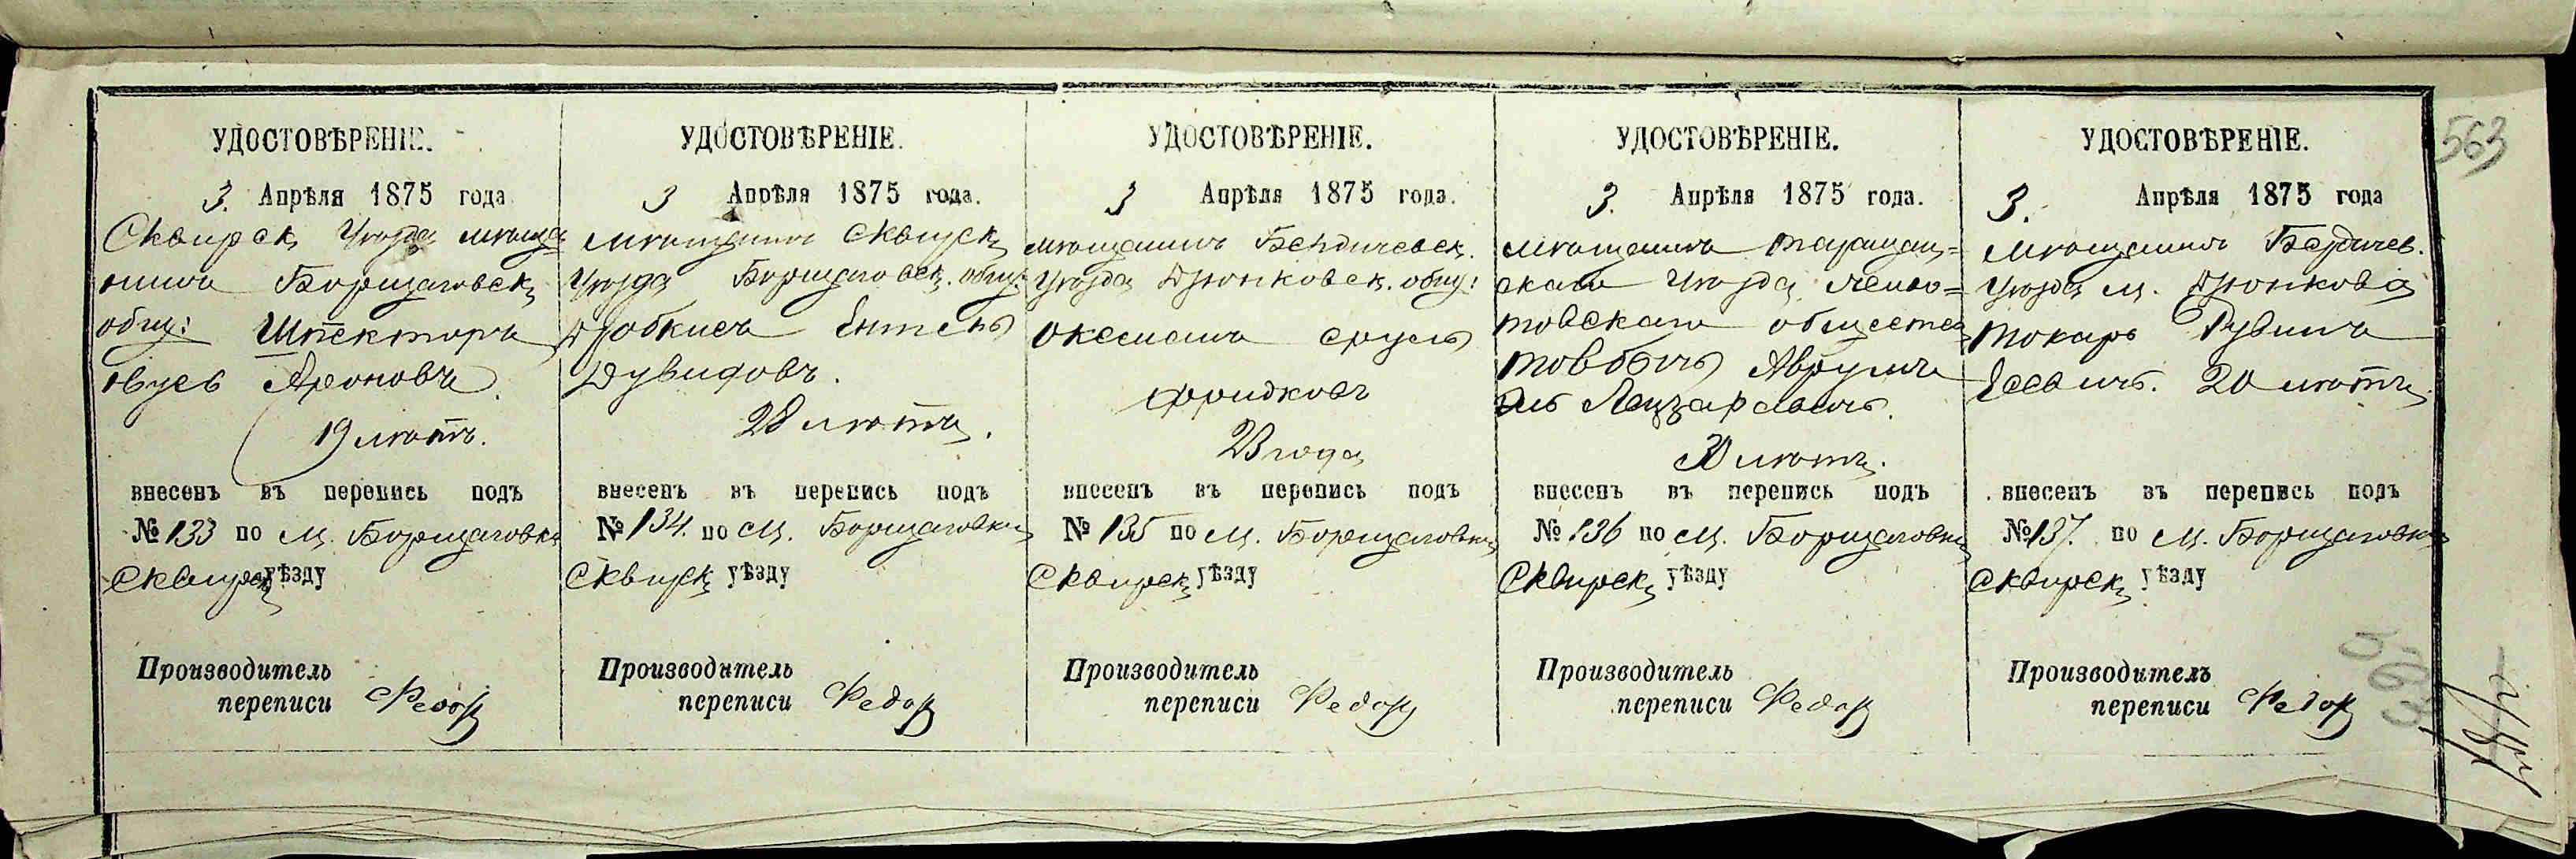 УДОСТОВѢРЕНІЕ.
3. Апрѣля 1875 года
Сквирск. Уѣзда мѣща
нинъ Борщаговск.
общ: Шпекторъ
Ароновъ
19 лѣтъ.
внесенъ въ перепись подъ
№ 133 по м. Борщаговкѣ
Сквирск. уѣзду
Производитель
переписи Федор
УДОСТОВѢРЕНІЕ.
3 Апрѣля 1875 года.
мѣщанинъ Сквирск.
Уѣзда Борщаговск. общ:
Дробкисъ Ентель
Дувидовъ.
28 лѣтъ.
внесенъ въ перепись подъ
№ 134. по м. Борщаговкѣ
Сквирск. уѣзду
Производитель
переписи Федор
УДОСТОВѢРЕНІЕ.
3 Апрѣля 1875 года.
мѣщанинъ Бердичевск.
Уѣзда Дзюнковск. общ:
Оксманъ Сруль
Фроидковъ
23 года
внесенъ въ перепись подъ
№ 135 по м. Борщаговкѣ
Сквирск. уѣзду
Производитель
переписи Федор
УДОСТОВѢРЕНІЕ.
3. Апрѣля 1875 года.
мѣщанинъ Таращан=
скаго Уѣзда
товскаго общества
Аврумъ
Эль Лейзаровичъ.
30 лѣтъ.
внесенъ въ перепись подъ
№ 136 по м. Борщаговкѣ
Сквирск. уѣзду
Производитель
переписи Федор
УДОСТОВѢРЕНІЕ.
3. Апрѣля 1875 года
мѣщанинъ Бердичев.
Уѣзда м. Дзюнкова
Токарь Рувинъ
20 лѣтъ.
внесенъ въ перепись подъ
№ 137. по м. Борщаговкѣ
Сквирск. уѣзду
Производитель
переписи Федор
563
563